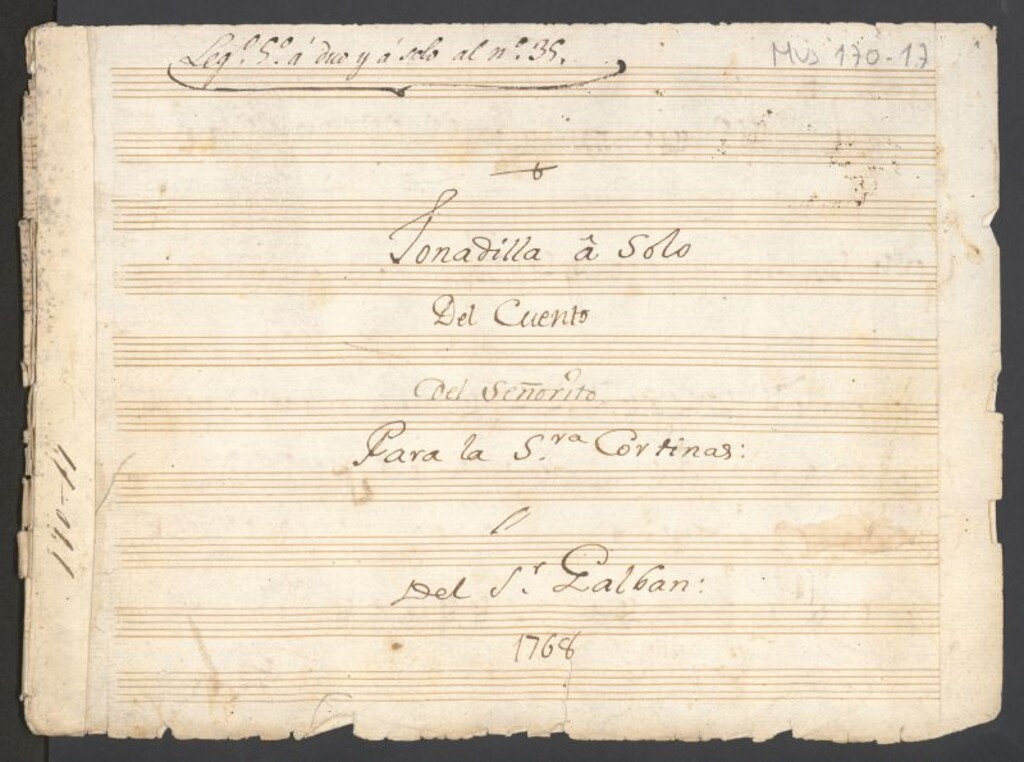 Leg.º 5.º á duo y á solo al n.º 35.
Mus 170-17
Tonadilla â Solo
Del Cuento
Del Señorito
Para la S.ra Cortinas:
Del S.r Galban:
1768
170-17